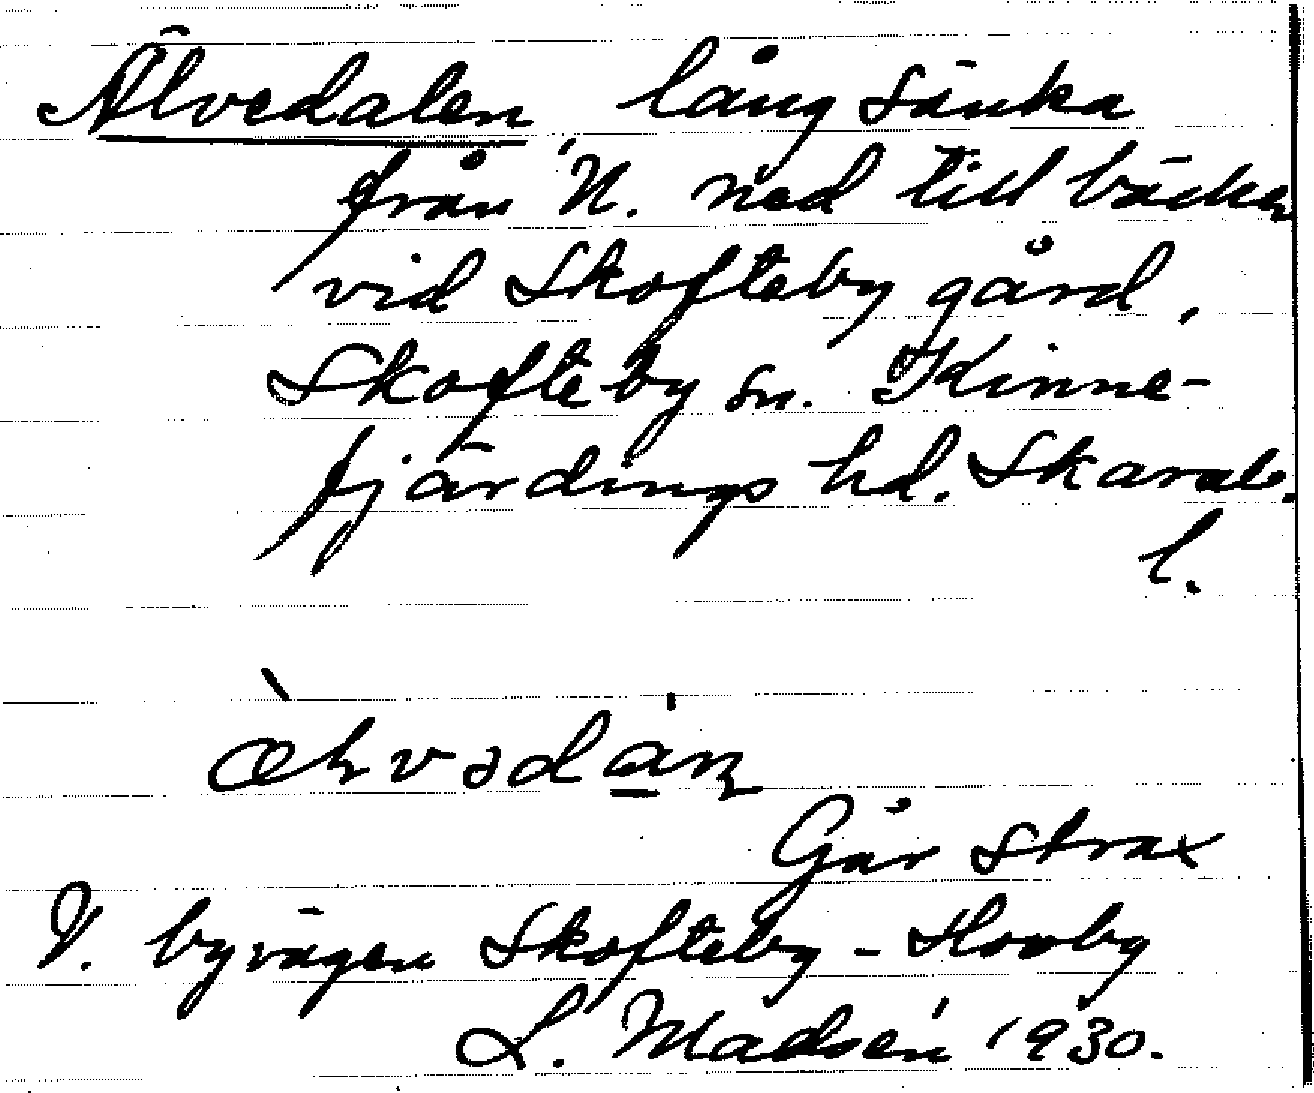 Älvedalen, lång sänka
från N. ned till bäcken
vid Skofteby gård,
Skofteby sn. Kinne-
fjärdings hd. Skarab.
l.
Går strax
V. byvägen Skofteby - Hovby
L. Madsén 1930.